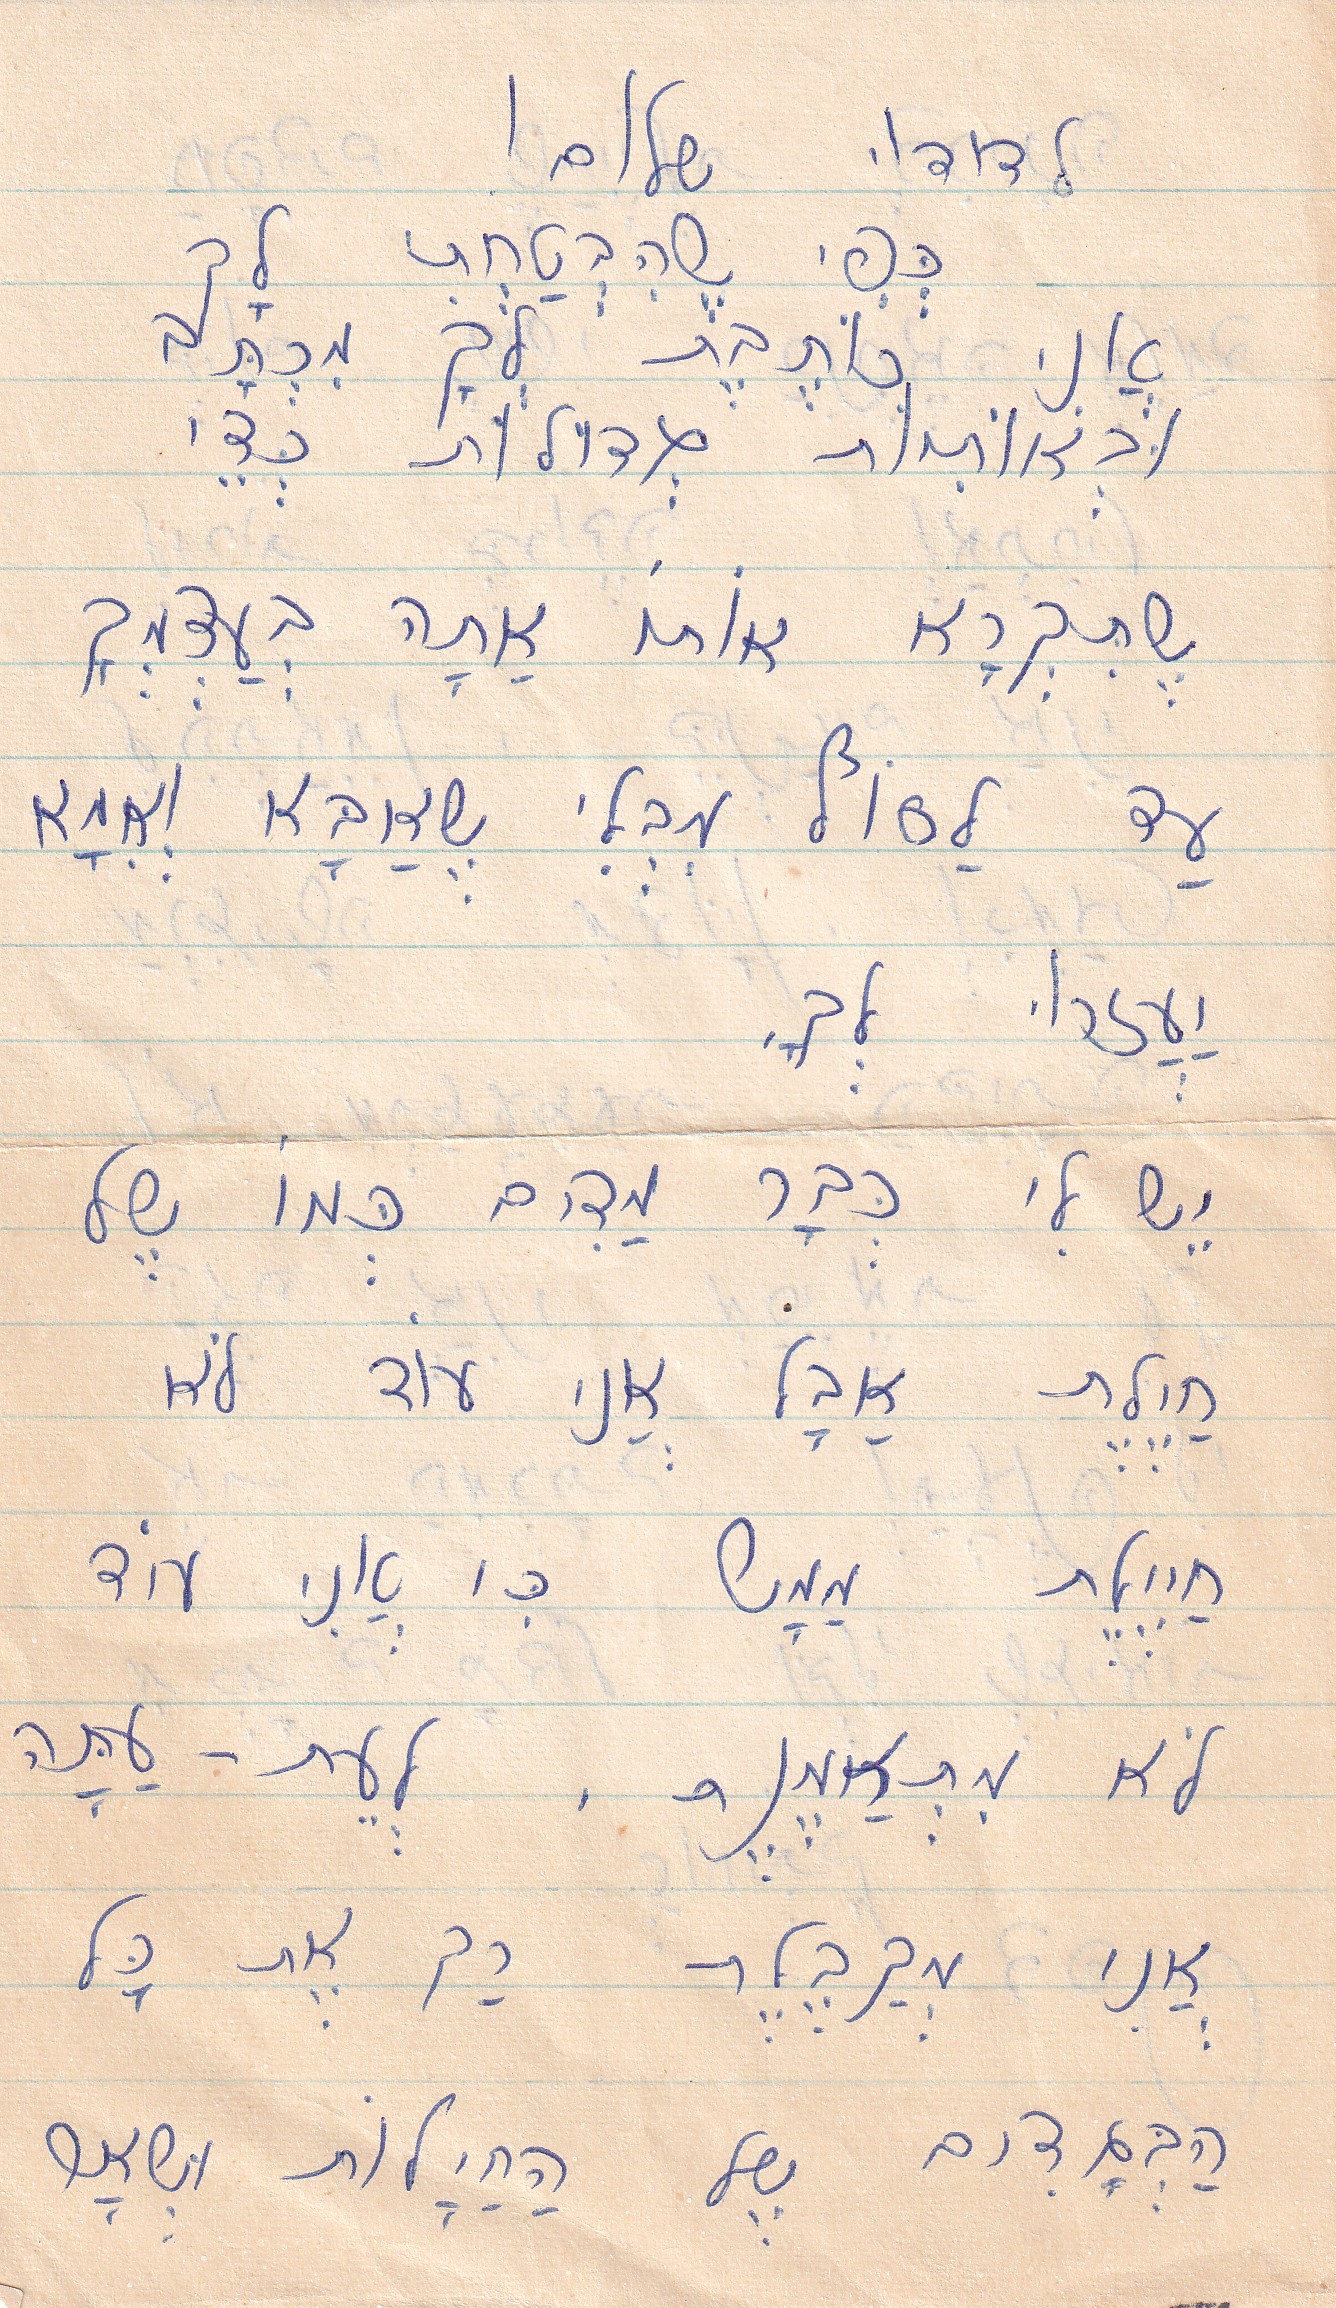 לדודי שלום!
כְּפִי שֶׁהִבְטַחְתִּי לָךְ
אֲנִי כּוֹתֶבֶת לְךָ מִכְתָּב
וּבְאוֹתִיּוֹת גְּדוֹלוֹת כְּדֵי
שֶׁתִּקְרָא אוֹתוֹ אַתָּה בְּעַצְמְךָ
עַד לַסּוֹף מִבְּלִי שֶׁאַבָּא וְאִמָּא
יַעַזְרוּ לְךָ,
יֵשׁ לִי כְּבָר מַדִּים כְּמוֹ שֶׁל
חַיֶּלֶת אֲבָל אֲנִי עוֹד לֹא
חַיֶּילֶת מַמָּשׁ כִּי אֲנִי עוֹד
לֹא מִתְאַמֶּנֶת, לְעֵת - עַתָּה
אֲנִי מְקַבֶּלֶת רַק אֶת כָּל
הַבְּגָדִים שֶׁל הַחַיָּלוֹת וּשְׁאָר